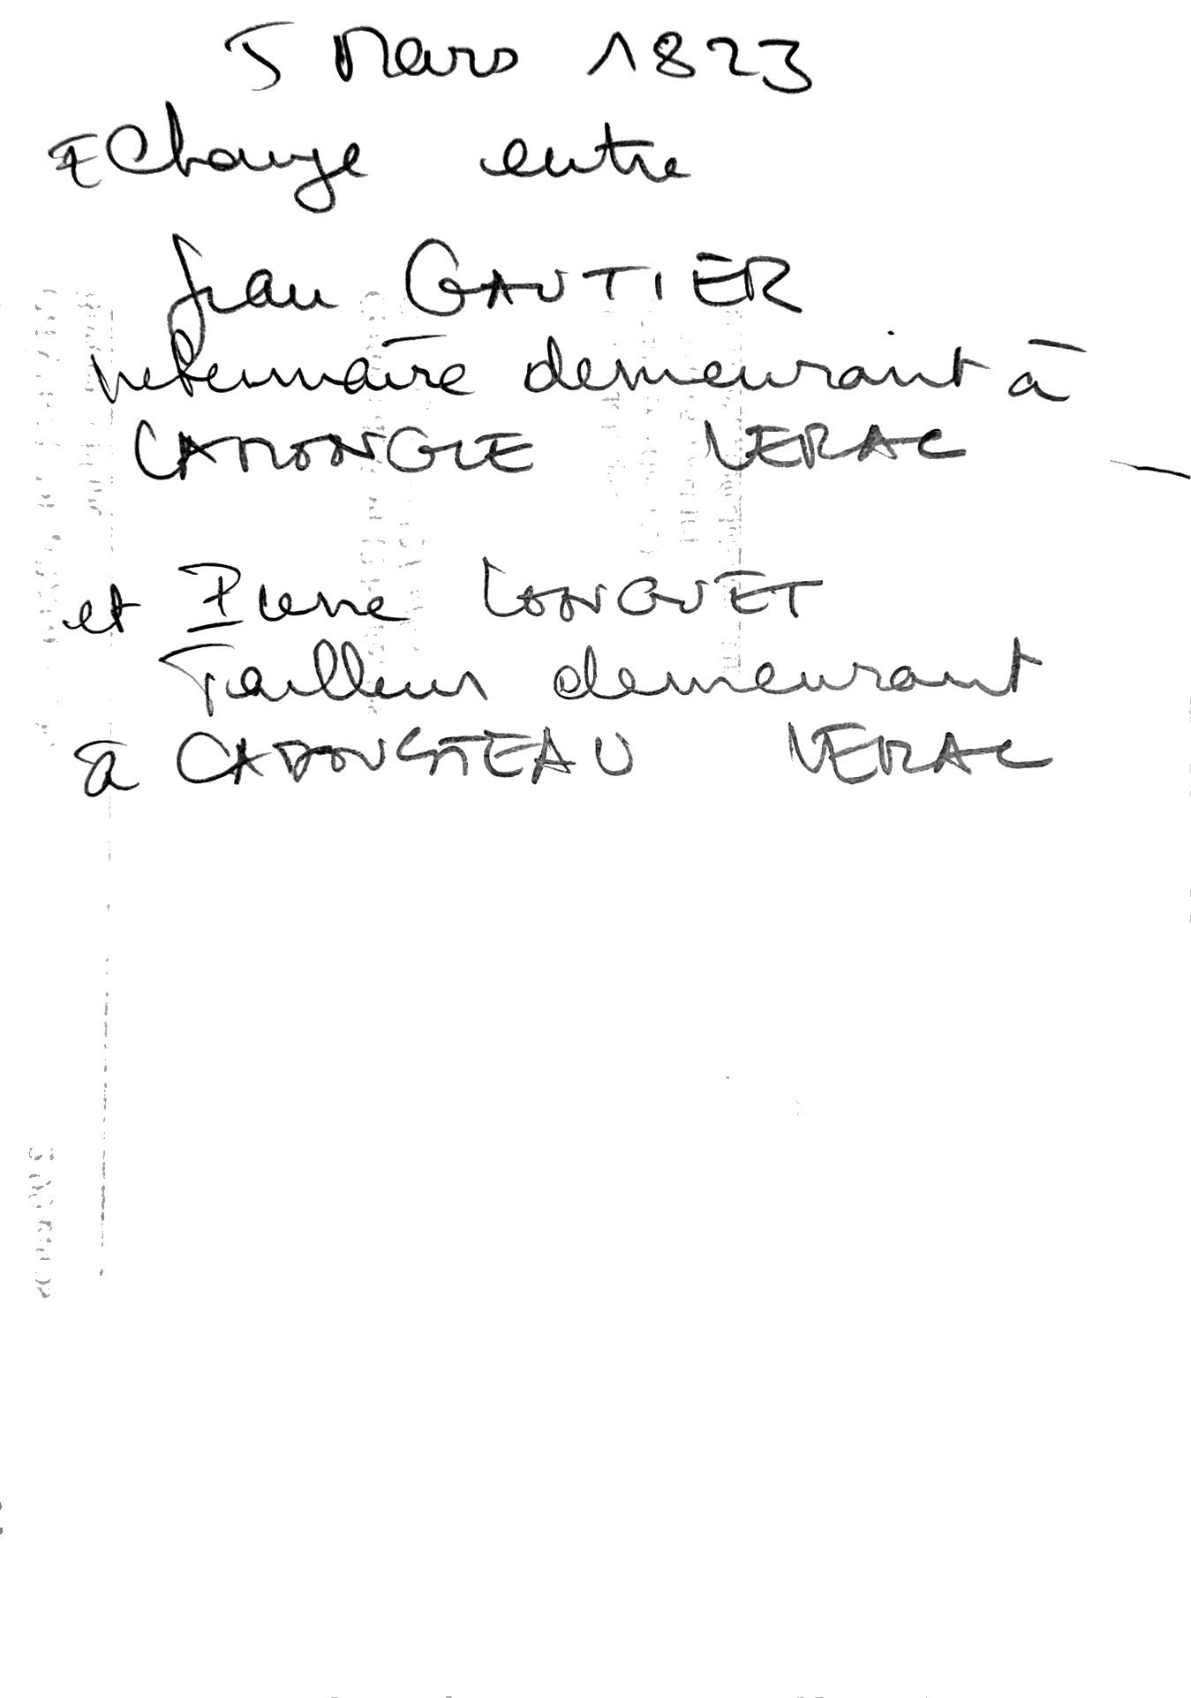 5 Mars 1823
Echange entre
Jean GAUTIER
veterinaire demeurant à
VERAC
et Pierre LONGUET
Tailleur demeurant
à VERAC